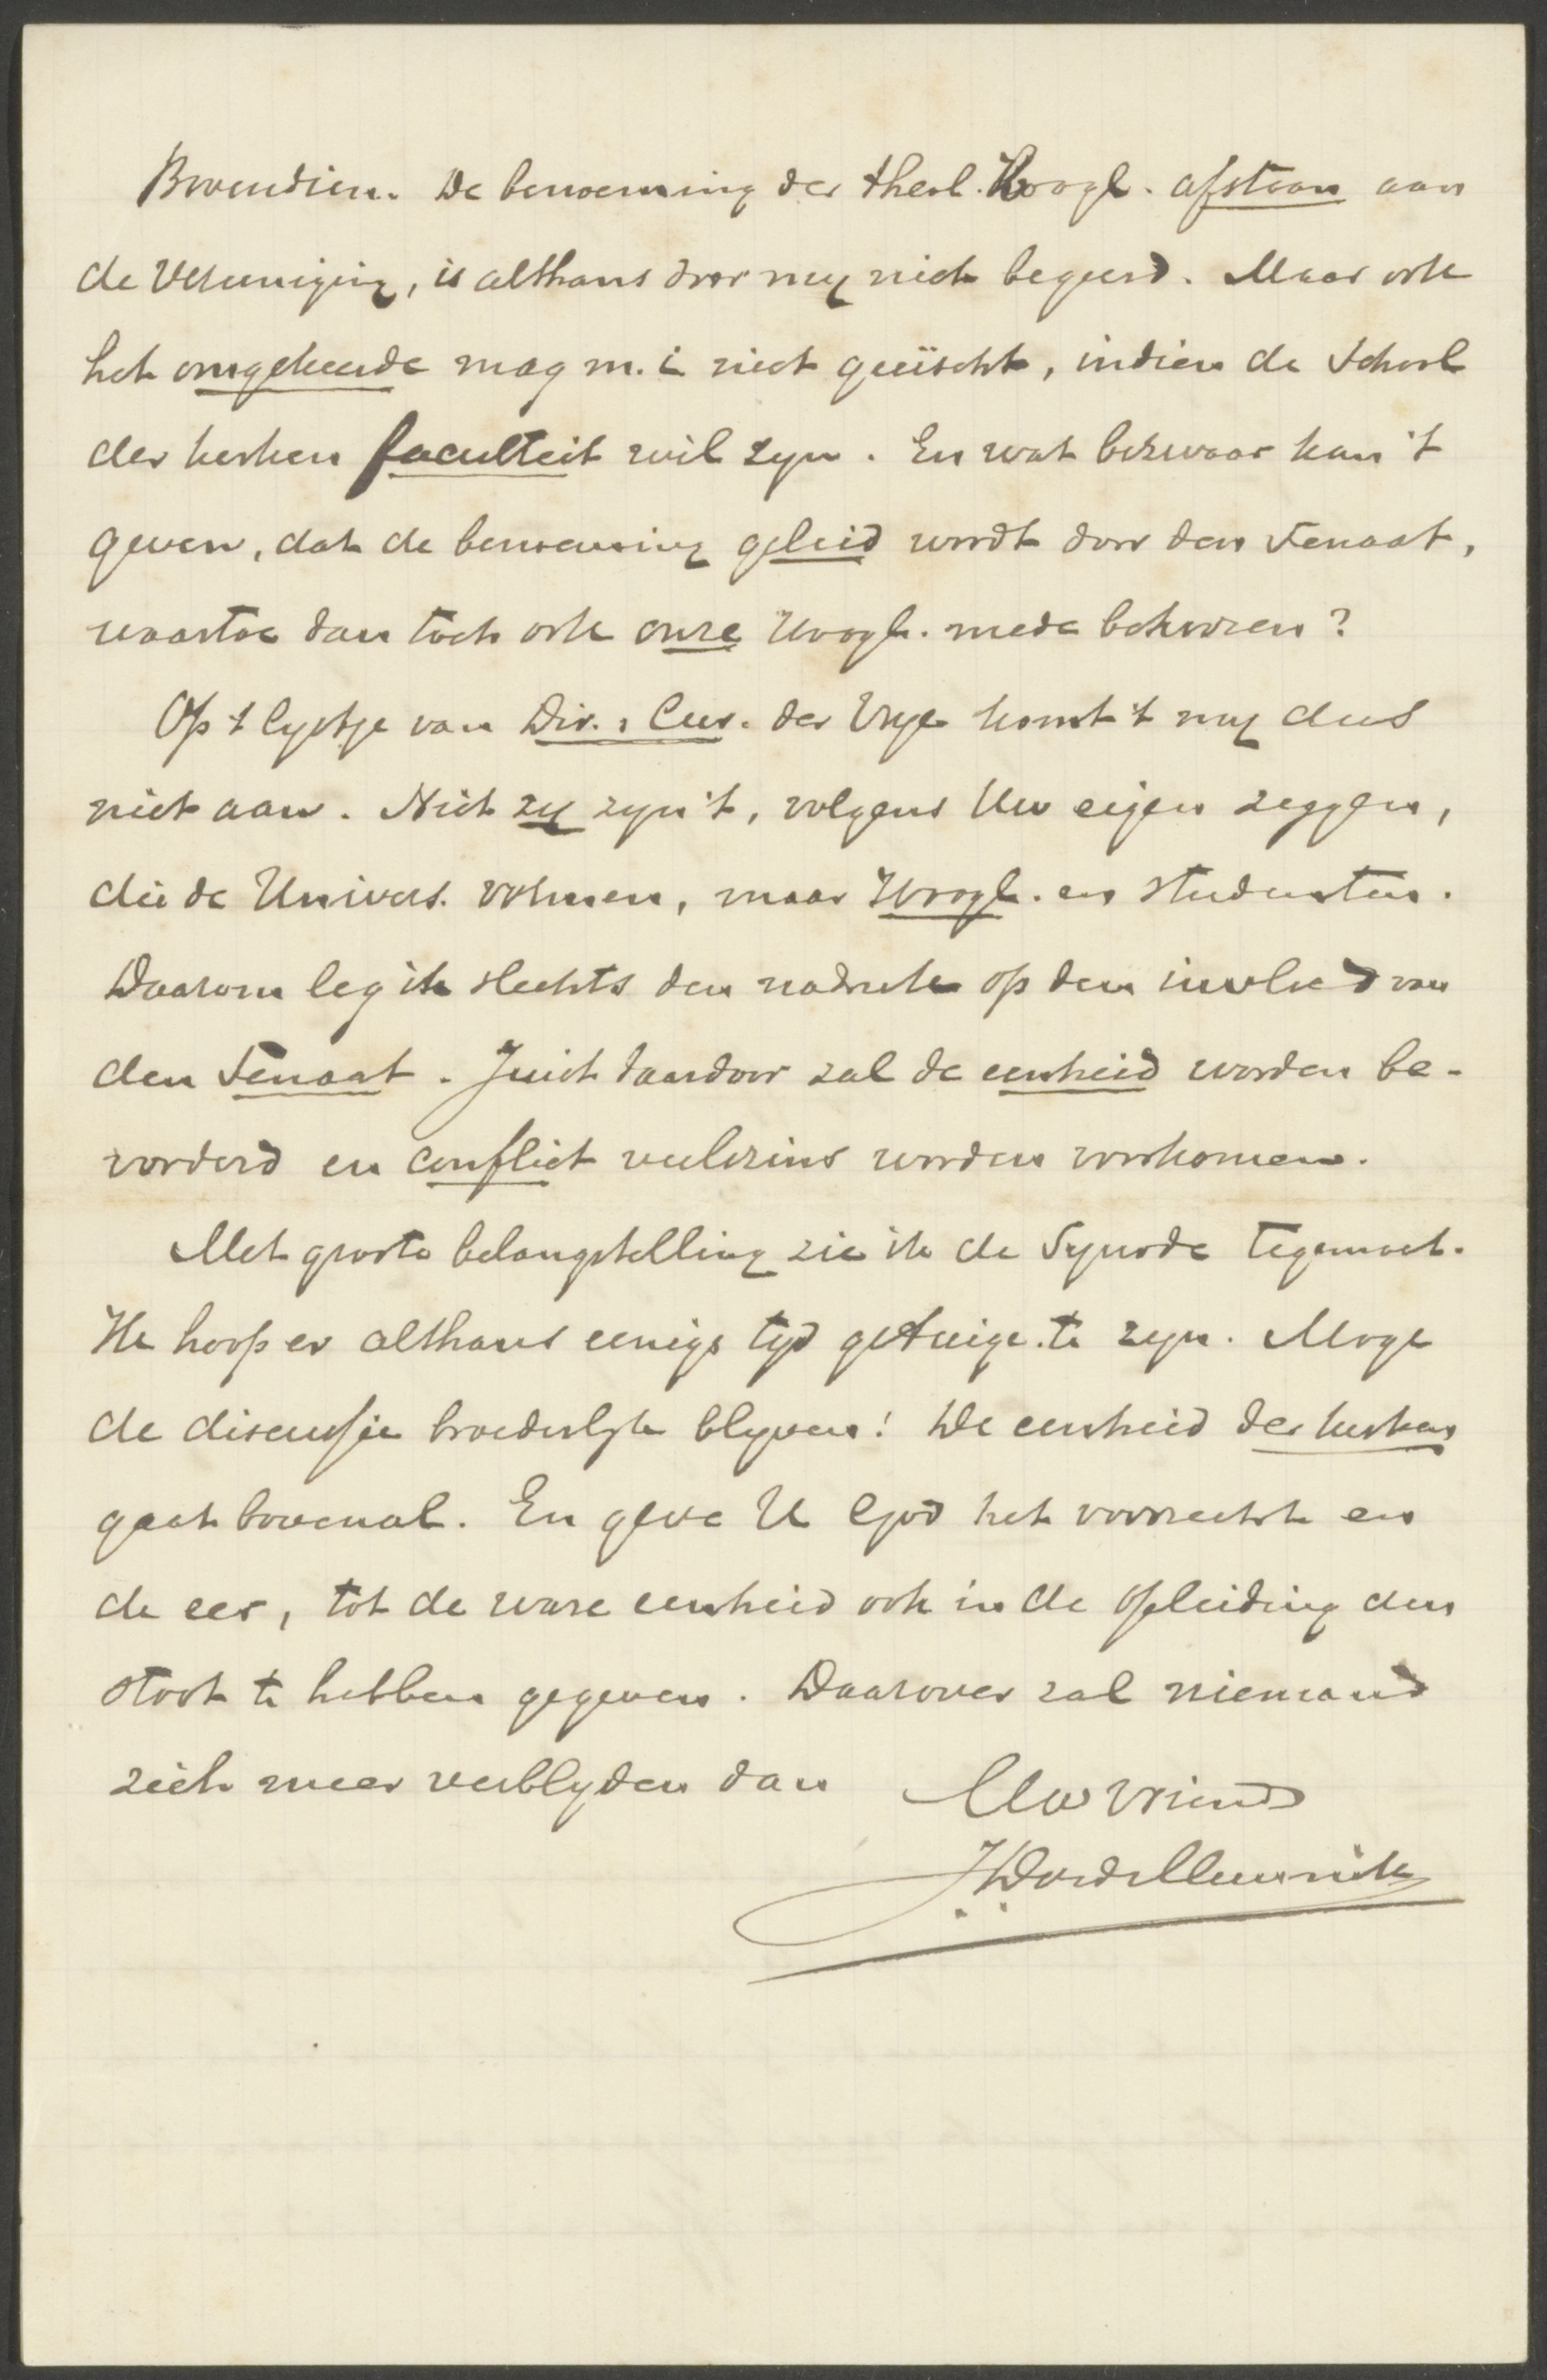 Bovendien. De benoeming der theol. Hoogl. afstaan aan
de Vereeniging, is althans door my niet begeerd. Maar ook
het omgekeerde mag m.i. niet geëischt, indien de School
der kerken faculteit wil zyn. En wat bezwaar kan 't
geven, dat de benoeming geleid wordt door den Senaat,
waartoe dan toch ook onze Hoogl. mede behooren?
Op 't lystje van Dir. & Cur. der Vrye komt 't my dus
niet aan. Niet zy zyn 't, volgens Uw eigen zeggen,
die de Univers. vormen, maar Hoogl. en studenten.
Daarom leg ik slechts den nadruk op den invloed van
den Senaat. Juist daardoor zal de eenheid worden be-
vorderd en conflict veelszins worden voorkomen.
Met groote belangstelling zie ik de Synode tegemoet.
Ik hoop er althans eenige tyd getuige te zyn. Moge
de discussie broederlyk blyven! De eenheid der kerken
gaat bovenal. En geve U God het voorrecht en
de eer, tot de ware eenheid ook in de opleiding den
stoot te hebben gegeven. Daarover zal niemand
zich meer verblyden dan Uw vriend